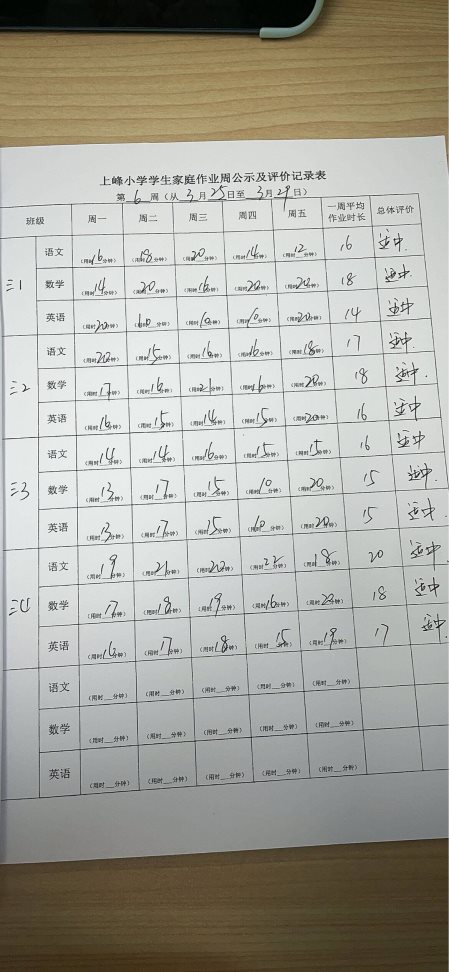 上峰小学学生家庭作业周公示及评价记录表
第 6 周（从 3 月 25 日至 3 月 29 日）
班级 周一 周二 周三 周四 周五 一周平均作业时长 总体评价
三1 语文 （用时16分钟） （用时18分钟） （用时20分钟） （用时14分钟） （用时12分钟） 16 适中.
数学 （用时14分钟） （用时20分钟） （用时16分钟） （用时20分钟） （用时20分钟） 18 适中.
英语 （用时20分钟） （用时10分钟） （用时10分钟） （用时10分钟） （用时20分钟） 14 适中
三2 语文 （用时20分钟） （用时15分钟） （用时16分钟） （用时16分钟） （用时18分钟） 17 适中.
数学 （用时17分钟） （用时16分钟） （用时21分钟） （用时16分钟） （用时20分钟） 18 适中.
英语 （用时16分钟） （用时15分钟） （用时14分钟） （用时15分钟） （用时20分钟） 16 适中
三3 语文 （用时14分钟） （用时14分钟） （用时16分钟） （用时15分钟） （用时15分钟） 16 适中
数学 （用时13分钟） （用时17分钟） （用时15分钟） （用时10分钟） （用时20分钟） 15 适中.
英语 （用时13分钟） （用时17分钟） （用时15分钟） （用时10分钟） （用时20分钟） 15 适中.
三4 语文 （用时19分钟） （用时21分钟） （用时20分钟） （用时22分钟） （用时18分钟） 20 适中
数学 （用时17分钟） （用时18分钟） （用时19分钟） （用时16分钟） （用时20分钟） 18 适中
英语 （用时16分钟） （用时17分钟） （用时18分钟） （用时15分钟） （用时19分钟） 17 适中.
语文 （用时___分钟） （用时___分钟） （用时___分钟） （用时___分钟） （用时___分钟）
数学 （用时___分钟） （用时___分钟） （用时___分钟） （用时___分钟） （用时___分钟）
英语 （用时___分钟） （用时___分钟） （用时___分钟） （用时___分钟） （用时___分钟）